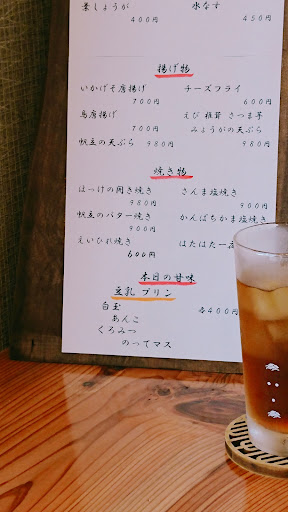 葉しょうが 水なす
400円 450円
揚げ物
いかげそ唐揚げ チーズフライ
700円 600円
鳥唐揚げ えび 椎茸 さつま芋
700円 みょうがの天ぷら
帆立の天ぷら 980円 980円
焼き物
ほっけの開き焼き さんま塩焼き
980円 980円
帆立のバター焼き かんぱちかま塩焼き
900円
えいひれ焼き はたはた一夜
600円
本日の甘味
豆乳プリン
白玉 各400円
あんこ
くろみつ
のってマス